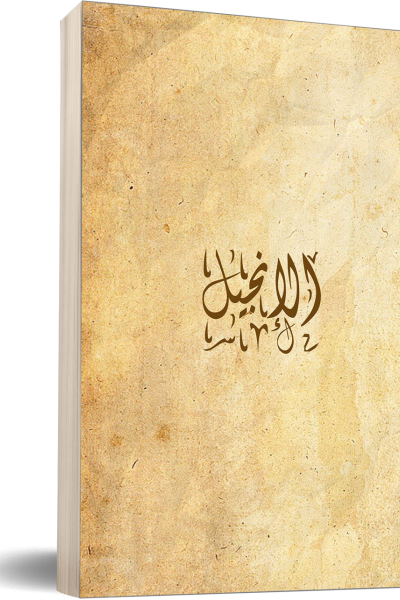 الإنجيل